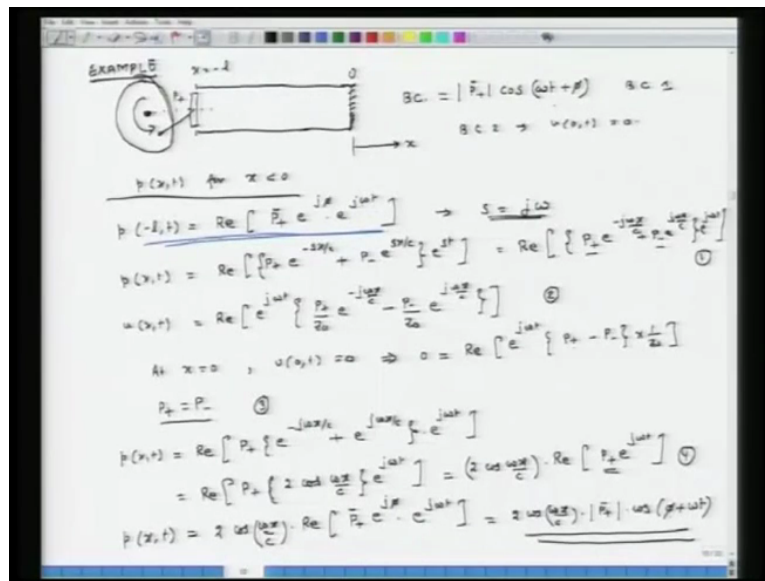 EXAMPLE
x=-l
0
P+
x
B.C. = |P̄+| cos (ωt + φ) B.C 1
B.C 2 → u(0,t) = 0.
p(x,t) for x < 0
p(-l,t) = Re [ P̄+ e^{jφ} · e^{jωt} ] → s = jω
p(x,t) = Re [ {P+ e^{-sx/c} + P- e^{sx/c}} e^{st} ] = Re [ { P+ e^{-jωx/c} + P- e^{jωx/c} } e^{jωt} ] ①
u(x,t) = Re [ e^{jωt} { P+/Z0 e^{-jωx/c} - P-/Z0 e^{jωx/c} } ] ②
At x=0 , u(0,t) = 0 ⇒ 0 = Re [ e^{jωt} { P+ - P- } × 1/Z0 ]
P+ = P- ③
p(x,t) = Re [ P+ { e^{-jωx/c} + e^{jωx/c} } · e^{jωt} ]
= Re [ P+ { 2 cos ωx/c } e^{jωt} ] = (2 cos ωx/c) · Re [ P+ e^{jωt} ] ④
p(x,t) = 2 cos(ωx/c) · Re [ P̄+ e^{jφ} · e^{jωt} ] = 2 cos(ωx/c) · |P̄+| · cos (φ+ωt)